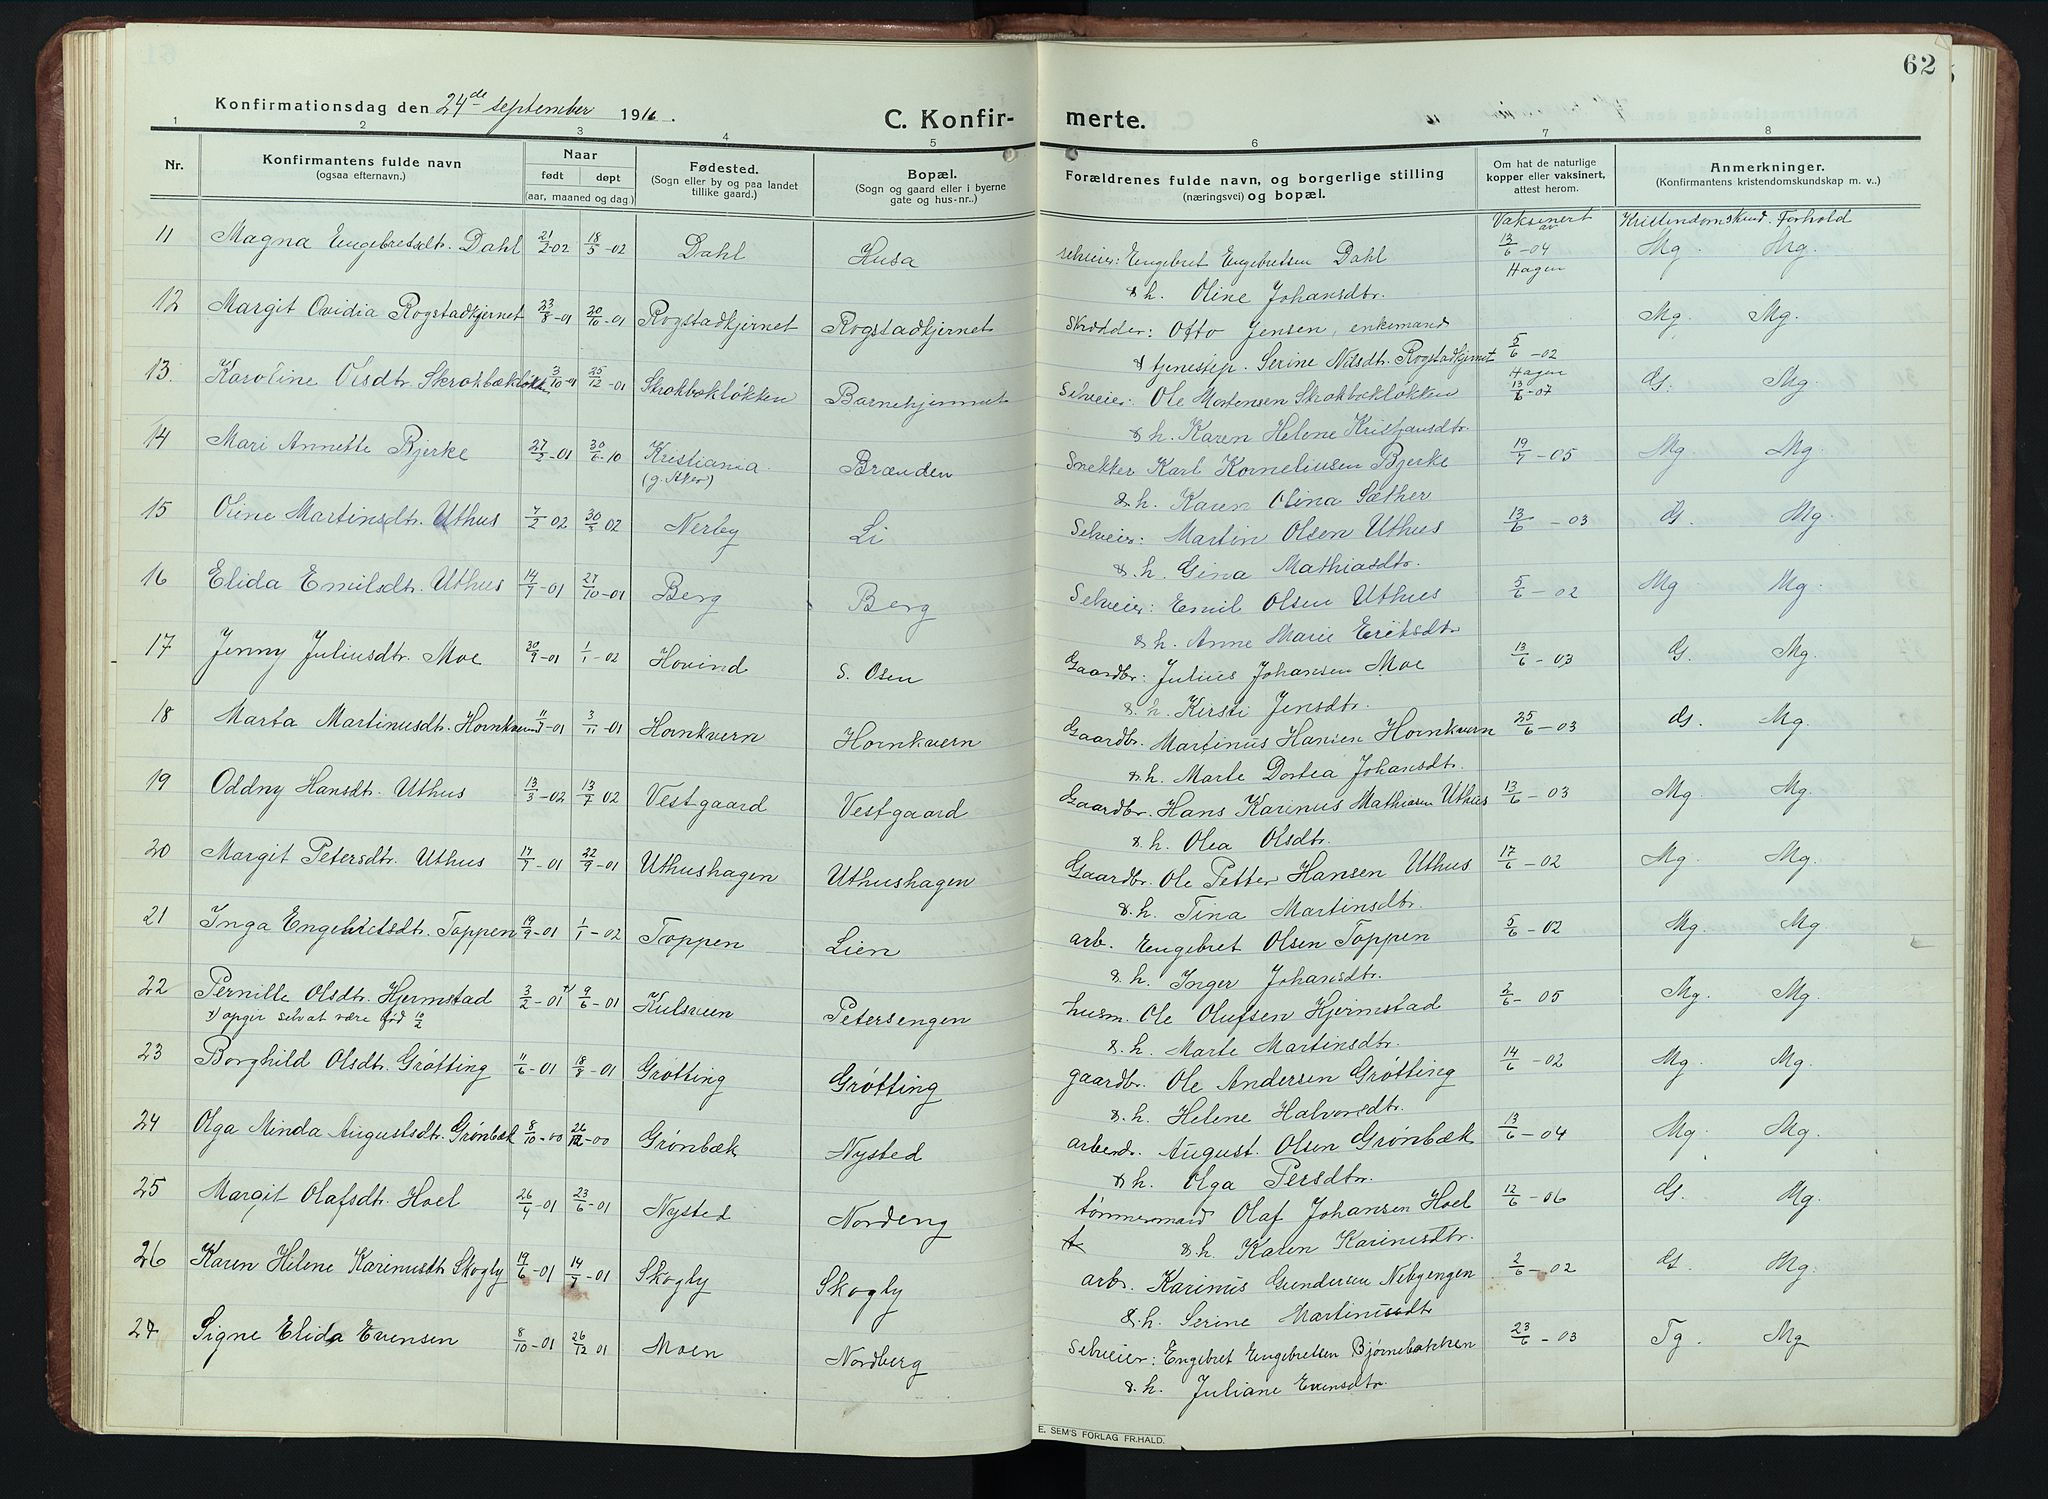 62
Konfirmationsdag den 24de september 1916.
C. Konfirmerte.
1 2 3 4 5 6 7 8
Nr.
Konfirmantens fulde navn
(ogsaa efternavn.)
Naar
født døpt
(aar, maaned og dag)
Fødested.
(Sogn eller by og paa landet
tillike gaard.)
Bopæl.
(Sogn og gaard eller i byerne
gate og hus-nr..)
Forældrenes fulde navn, og borgerlige stilling
(næringsvei) og bopæl.
Om hat de naturlige
kopper eller vaksinert,
attest herom.
Anmerkninger.
(Konfirmantens kristendomskundskap m. v.,)
Vaksinert av Kristendomskund. Forhold
11 Magna Engebretsdtr. Dahl 21/2-02 18/5-02 Dahl Husa selveier: Engebret Engebretsen Dahl 13/6-04 Mg Mg.
& h. Oline Johansdtr. Hagen
12 Margit Ovidia Rogstadkjernet 23/8-01 20/10-01 Rogstadkjernet Rogstadkjernet Skrædder: Otto Jensen, enkemand Mg. Mg.
& tjenestep. Serine Nilsdtr. Rogstadkjernet 5/6-02 Hagen
13. Karoline Olsdtr. Skrokbækløkk 3/10-01 25/12-01 Skrokbækløkken Barnehjemmet Selveier: Ole Mortensen Skrokbækløkken 13/6-07 G. Mg.
& h. Karen Helene Kristjansdtr.
14 Mari Annette Bjerke 27/2-01 30/6-10 Kristiania (g. Aker) Brænden Snekker Karl Korneliusen Bjerke 19/7-05 Mg. Mg.
& h. Karen Olina Sæther
15 Oline Martinsdtr. Uthus 7/2 02 30/3 02 Nerby Li Selveier: Martin Olsen Uthus 13/6-03 G. Mg.
& h. Gina Mathiasdtr.
16 Elida Emilsdtr. Uthus 14/7-01 27/10-01 Berg Berg Selveier: Emil Olsen Uthus 5/6-02 Mg Mg.
& h. Anne Marie Eriksdtr
17 Jenny Juliusdtr. Moe 30/9-01 1/1-02 Hovind S. Osen Gaardbr: Julius Johansen Moe 13/6-03 G. Mg.
& h. Kirsti Jensdtr.
18 Marta Martinusdtr. Hornkvern 11/9-01 3/11-01 Hornkvern Hornkvern Gaardbr. Martinus Hansen Hornkvern 25/6-03 G. Mg.
& h. Marte Dortea Johansdtr.
19 Oddny Hansdtr. Uthus 13/3-02 13/7 02 Vestgaard Vestgaard Gaardbr. Hans Karinus Mathiasen Uthus 13/6-03 Mg. Mg.
& h. Olea Olsdtr.
20 Margit Petersdtr. Uthus 17/7-01 22/9-01 Uthushagen Uthushagen Gaardbr. Ole Petter Hansen Uthus 17/6-02 Mg. Mg.
& h. Tina Martinsdtr.
21 Inga Engebretsdtr. Toppen 19/9-01 1/1-02 Toppen Lien arb. Engebret Olsen Toppen 5/6-02 Mg. Mg
& h. Inger Johansdtr.
22 Pernille Olsdtr. Hjermstad 3/2-01 9/6-01 Kulsveen Petersengen husm. Ole Olufsen Hjermstad 2/6-05 Mg. Mg.
opgir selv at være fød 10/2
& h. Marte Martinsdtr.
23 Borghild Olsdtr. Grøtting 11/6-01 18/8-01 Grøtting Grøtting gaardbr. Ole Andersen Grøtting 14/6-02 Mg. Mg.
& h. Helene Halvorsdtr.
24 Olga Minda Augustsdtr. Grønbæk 8/10-00 26/12-00 Grønbæk Nysted arbeid. August Olsen Grønbæk 13/6-04 Mg. Mg.
& h. Olga Persdtr.
25 Margit Olafsdtr. Hoel 26/4-01 23/6-01 Nysted Nordeng tømmermand Olaf Johansen Hoel 12/6-06 G. Mg.
& h. Karen Karinusdtr.
26 Karen Helene Karinusdtr Skogly 19/6-01 14/7-01 Skogly Skogly arb. Karinus Gundersen Nebyengen 2/6-02 G. Mg.
& h. Serine Martinusdtr
27 Signe Elida Evensen 8/10-01 26/12 01 Moen Nordberg Selveier: Engebret Engebretsen Bjørnebækken 23/6-03 Tg. Mg
& h. Juliane Evensdtr.
E. SEM'S FORLAG FR.HALD.